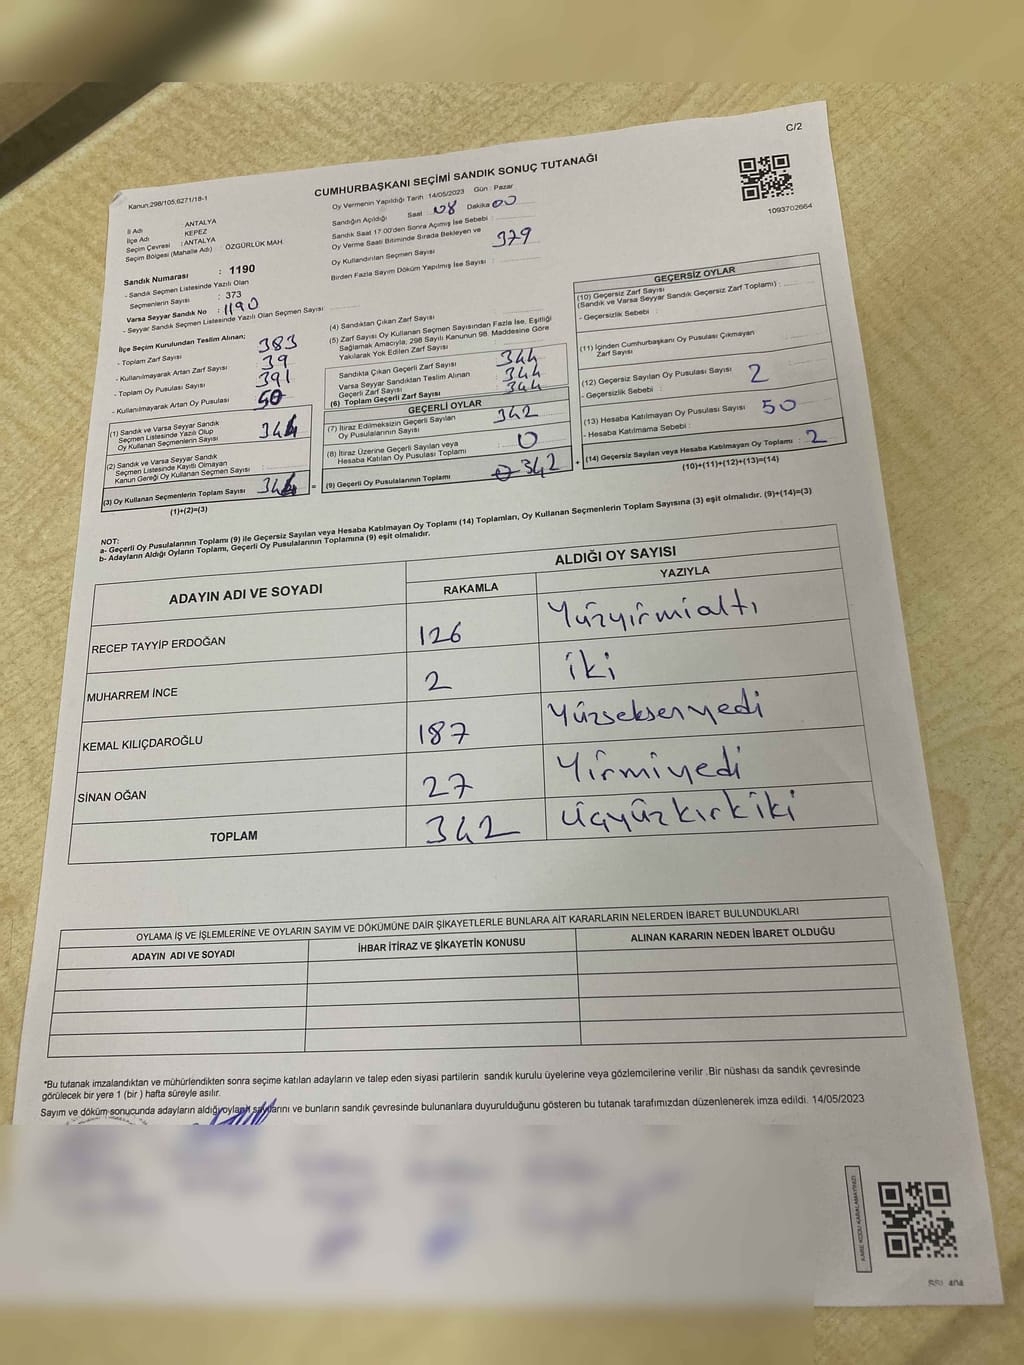 C/2
Kanun:298/105,6271/18-1
CUMHURBAŞKANI SEÇİMİ SANDIK SONUÇ TUTANAĞI
1093702664
İl Adı : ANTALYA
İlçe Adı : KEPEZ
Seçim Çevresi : ANTALYA
Seçim Bölgesi (Mahalle Adı) : ÖZGÜRLÜK MAH.
Sandık Numarası : 1190
- Sandık Seçmen Listesinde Yazılı Olan
Seçmenlerin Sayısı : 373
Varsa Seyyar Sandık No : 1190
- Seyyar Sandık Seçmen Listesinde Yazılı Olan Seçmen Sayısı :
Oy Vermenin Yapıldığı Tarih 14/05/2023 Gün : Pazar
Sandığın Açıldığı Saat 08 Dakika 00
Sandık Saat 17:00'den Sonra Açılmış İse Sebebi :
Oy Verme Saati Bitiminde Sırada Bekleyen ve
Oy Kullandırılan Seçmen Sayısı
Birden Fazla Sayım Döküm Yapılmış İse Sayısı :
İlçe Seçim Kurulundan Teslim Alınan;
- Toplam Zarf Sayısı 383
- Kullanılmayarak Artan Zarf Sayısı 39
- Toplam Oy Pusulası Sayısı 391
- Kullanılmayarak Artan Oy Pusulası 50
(1) Sandık ve Varsa Seyyar Sandık
Seçmen Listesinde Yazılı Olup
Oy Kullanan Seçmenlerin Sayısı 344
(2) Sandık ve Varsa Seyyar Sandık
Seçmen Listesinde Kayıtlı Olmayan
Kanun Gereği Oy Kullanan Seçmen Sayısı
(3) Oy Kullanan Seçmenlerin Toplam Sayısı 344
(1)+(2)=(3)
(4) Sandıktan Çıkan Zarf Sayısı
(5) Zarf Sayısı Oy Kullanan Seçmen Sayısından Fazla İse, Eşitliği
Sağlamak Amacıyla, 298 Sayılı Kanunun 98. Maddesine Göre
Yakılarak Yok Edilen Zarf Sayısı
Sandıkta Çıkan Geçerli Zarf Sayısı : 344
Varsa Seyyar Sandıktan Teslim Alınan
Geçerli Zarf Sayısı : 344
(6) Toplam Geçerli Zarf Sayısı : 344
GEÇERLİ OYLAR
(7) İtiraz Edilmeksizin Geçerli Sayılan
Oy Pusulalarının Sayısı 342
(8) İtiraz Üzerine Geçerli Sayılan veya
Hesaba Katılan Oy Pusulası Toplamı 0
(9) Geçerli Oy Pusulalarının Toplamı 342
GEÇERSİZ OYLAR
(10) Geçersiz Zarf Sayısı
(Sandık ve Varsa Seyyar Sandık Geçersiz Zarf Toplamı) :
- Geçersizlik Sebebi :
(11) İçinden Cumhurbaşkanı Oy Pusulası Çıkmayan
Zarf Sayısı
(12) Geçersiz Sayılan Oy Pusulası Sayısı 2
- Geçersizlik Sebebi :
(13) Hesaba Katılmayan Oy Pusulası Sayısı 50
- Hesaba Katılmama Sebebi :
(14) Geçersiz Sayılan veya Hesaba Katılmayan Oy Toplamı : 2
(10)+(11)+(12)+(13)=(14)
NOT:
a- Geçerli Oy Pusulalarının Toplamı (9) ile Geçersiz Sayılan veya Hesaba Katılmayan Oy Toplamı (14) Toplamları, Oy Kullanan Seçmenlerin Toplam Sayısına (3) eşit olmalıdır. (9)+(14)=(3)
b- Adayların Aldığı Oyların Toplamı, Geçerli Oy Pusulalarının Toplamına (9) eşit olmalıdır.
ADAYIN ADI VE SOYADI
ALDIĞI OY SAYISI
RAKAMLA YAZIYLA
RECEP TAYYİP ERDOĞAN 126 Yüzyirmialtı
MUHARREM İNCE 2 iki
KEMAL KILIÇDAROĞLU 187 Yüzseksenyedi
SİNAN OĞAN 27 Yirmiyedi
TOPLAM 342 üçyüzkırkiki
OYLAMA İŞ VE İŞLEMLERİNE VE OYLARIN SAYIM VE DÖKÜMÜNE DAİR ŞİKAYETLERLE BUNLARA AİT KARARLARIN NELERDEN İBARET BULUNDUKLARI
ADAYIN ADI VE SOYADI İHBAR İTİRAZ VE ŞİKAYETİN KONUSU ALINAN KARARIN NEDEN İBARET OLDUĞU
*Bu tutanak imzalandıktan ve mühürlendikten sonra seçime katılan adayların ve talep eden siyasi partilerin sandık kurulu üyelerine veya gözlemcilerine verilir .Bir nüshası da sandık çevresinde
görülecek bir yere 1 (bir ) hafta süreyle asılır.
Sayım ve döküm sonucunda adayların aldığı oyların sayılarını ve bunların sandık çevresinde bulunanlara duyurulduğunu gösteren bu tutanak tarafımızdan düzenlenerek imza edildi. 14/05/2023